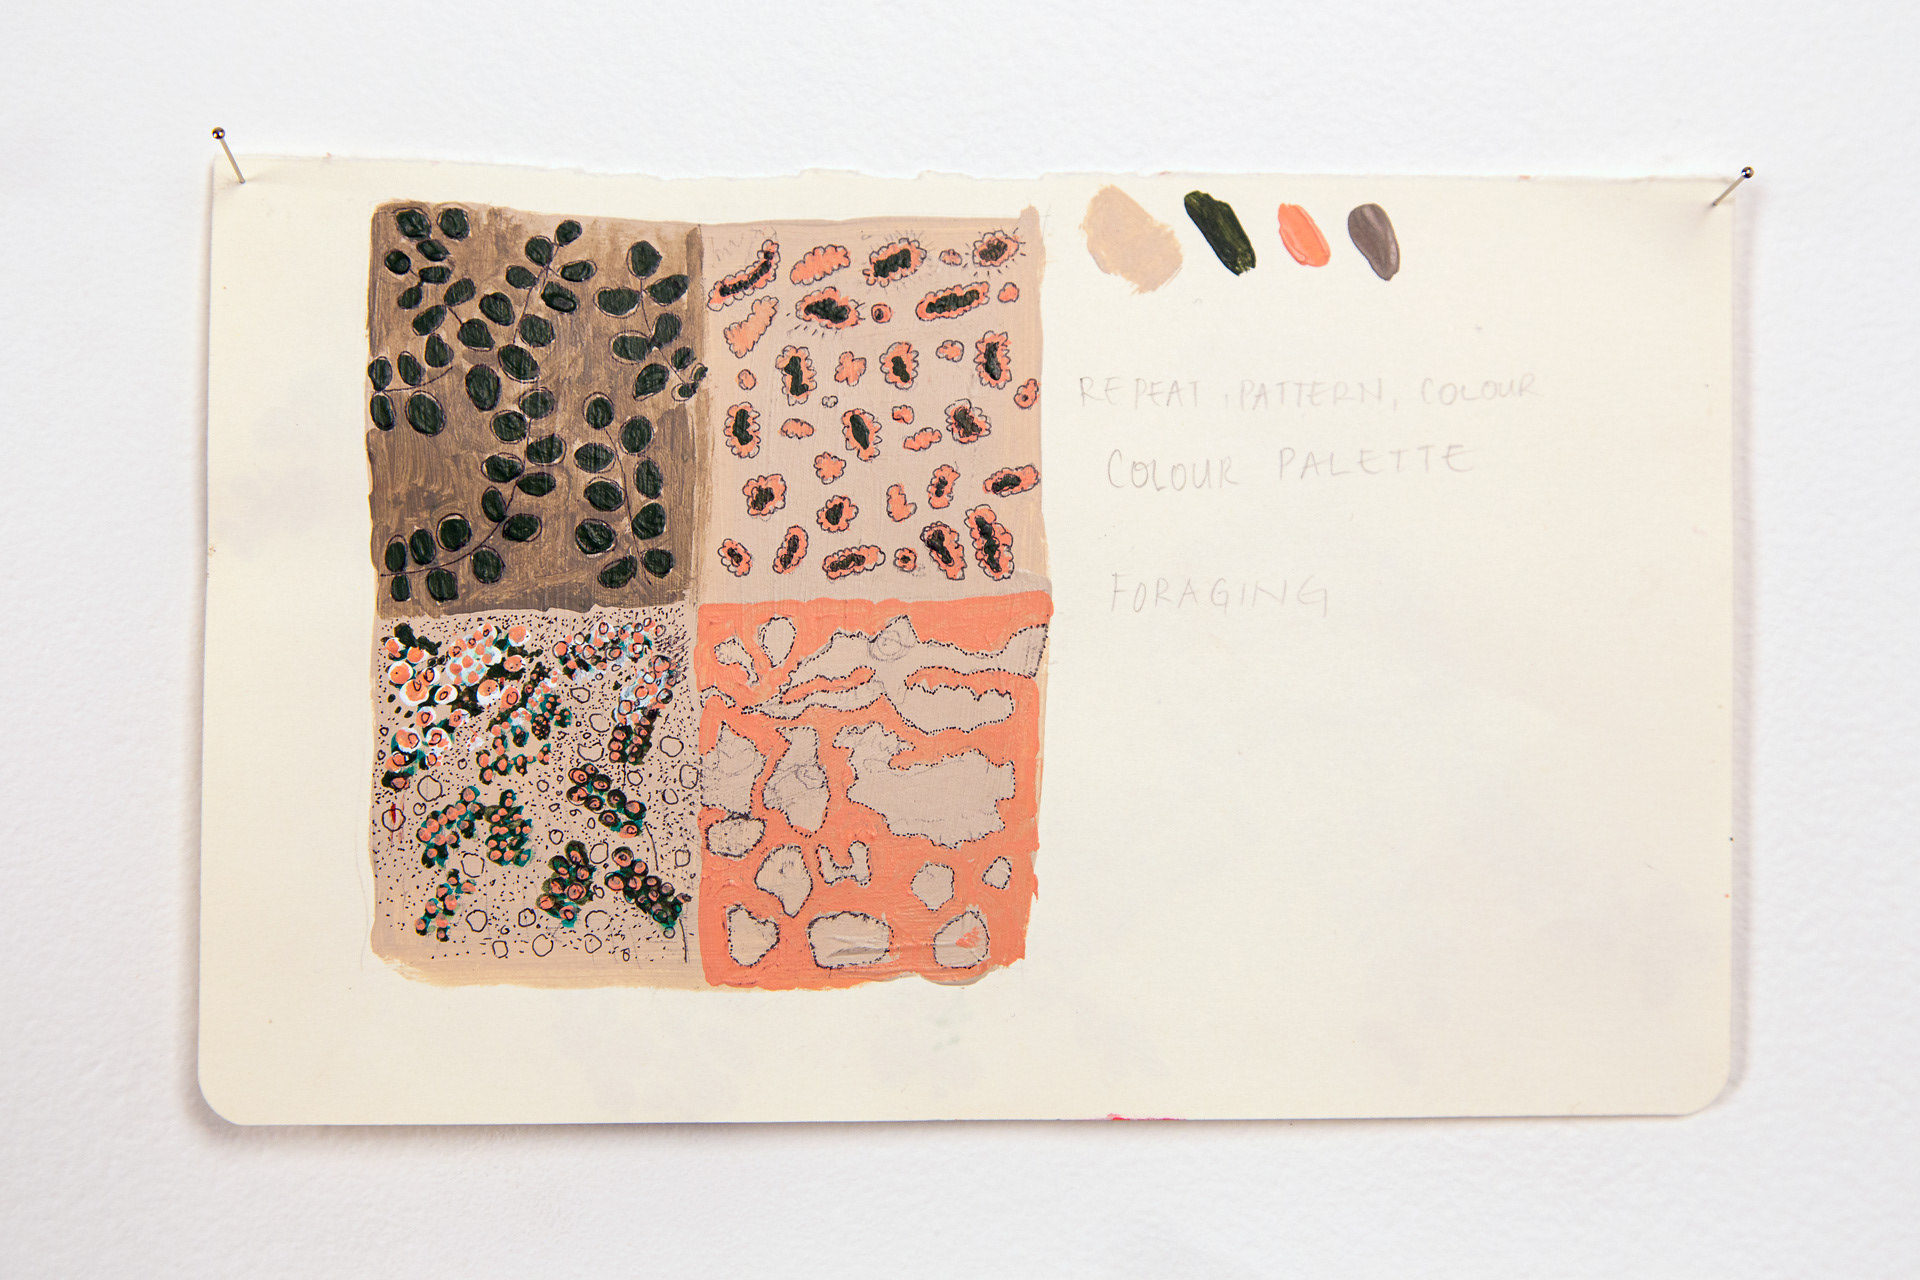 REPEAT, PATTERN, COLOUR
COLOUR PALETTE
FORAGING